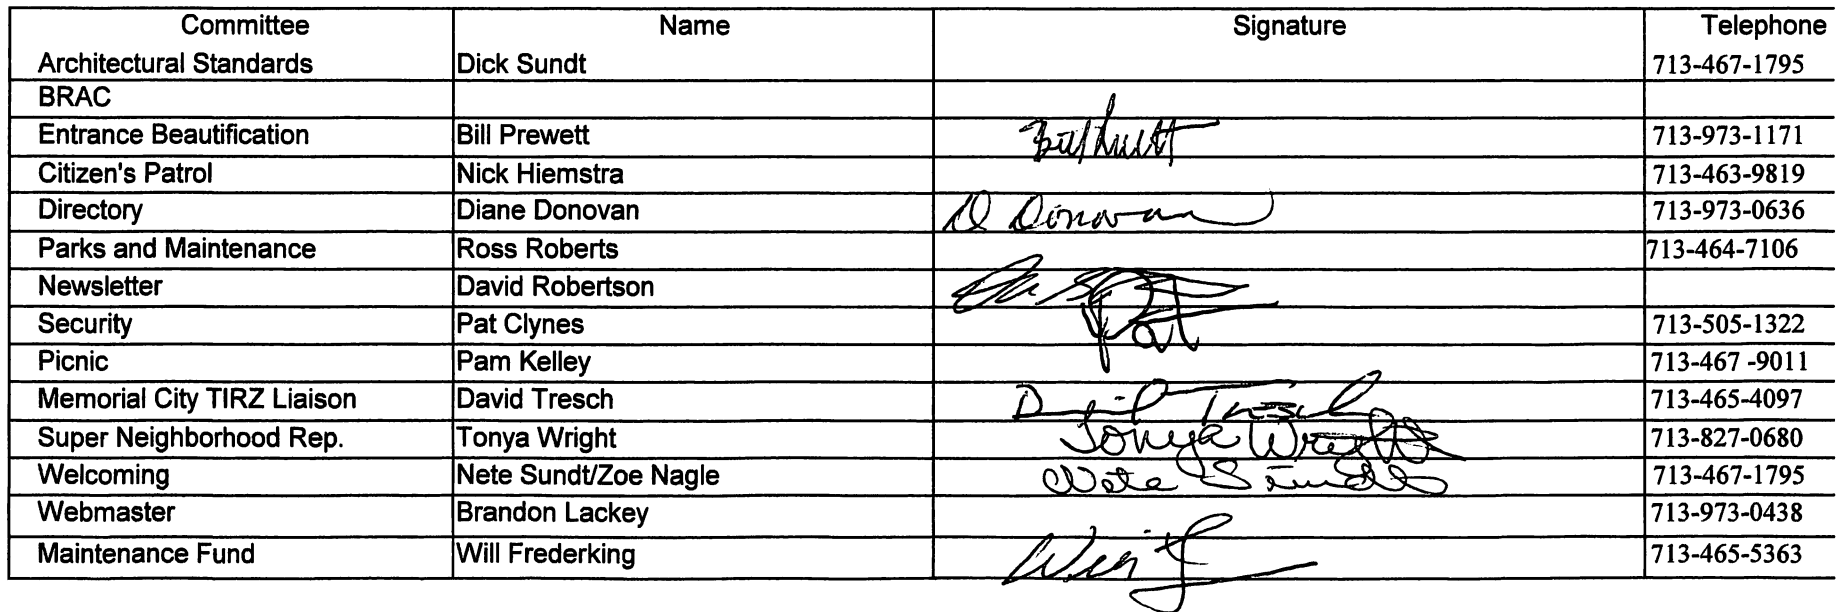 Committee Name Signature Telephone
Architectural Standards Dick Sundt 713-467-1795
BRAC
Entrance Beautification Bill Prewett Bill Pruett 713-973-1171
Citizen's Patrol Nick Hiemstra 713-463-9819
Directory Diane Donovan D Donovan 713-973-0636
Parks and Maintenance Ross Roberts 713-464-7106
Newsletter David Robertson
Security Pat Clynes Pat 713-505-1322
Picnic Pam Kelley 713-467 -9011
Memorial City TIRZ Liaison David Tresch David Tresch 713-465-4097
Super Neighborhood Rep. Tonya Wright Tonya Wright 713-827-0680
Welcoming Nete Sundt/Zoe Nagle Nete Sundt 713-467-1795
Webmaster Brandon Lackey 713-973-0438
Maintenance Fund Will Frederking 713-465-5363